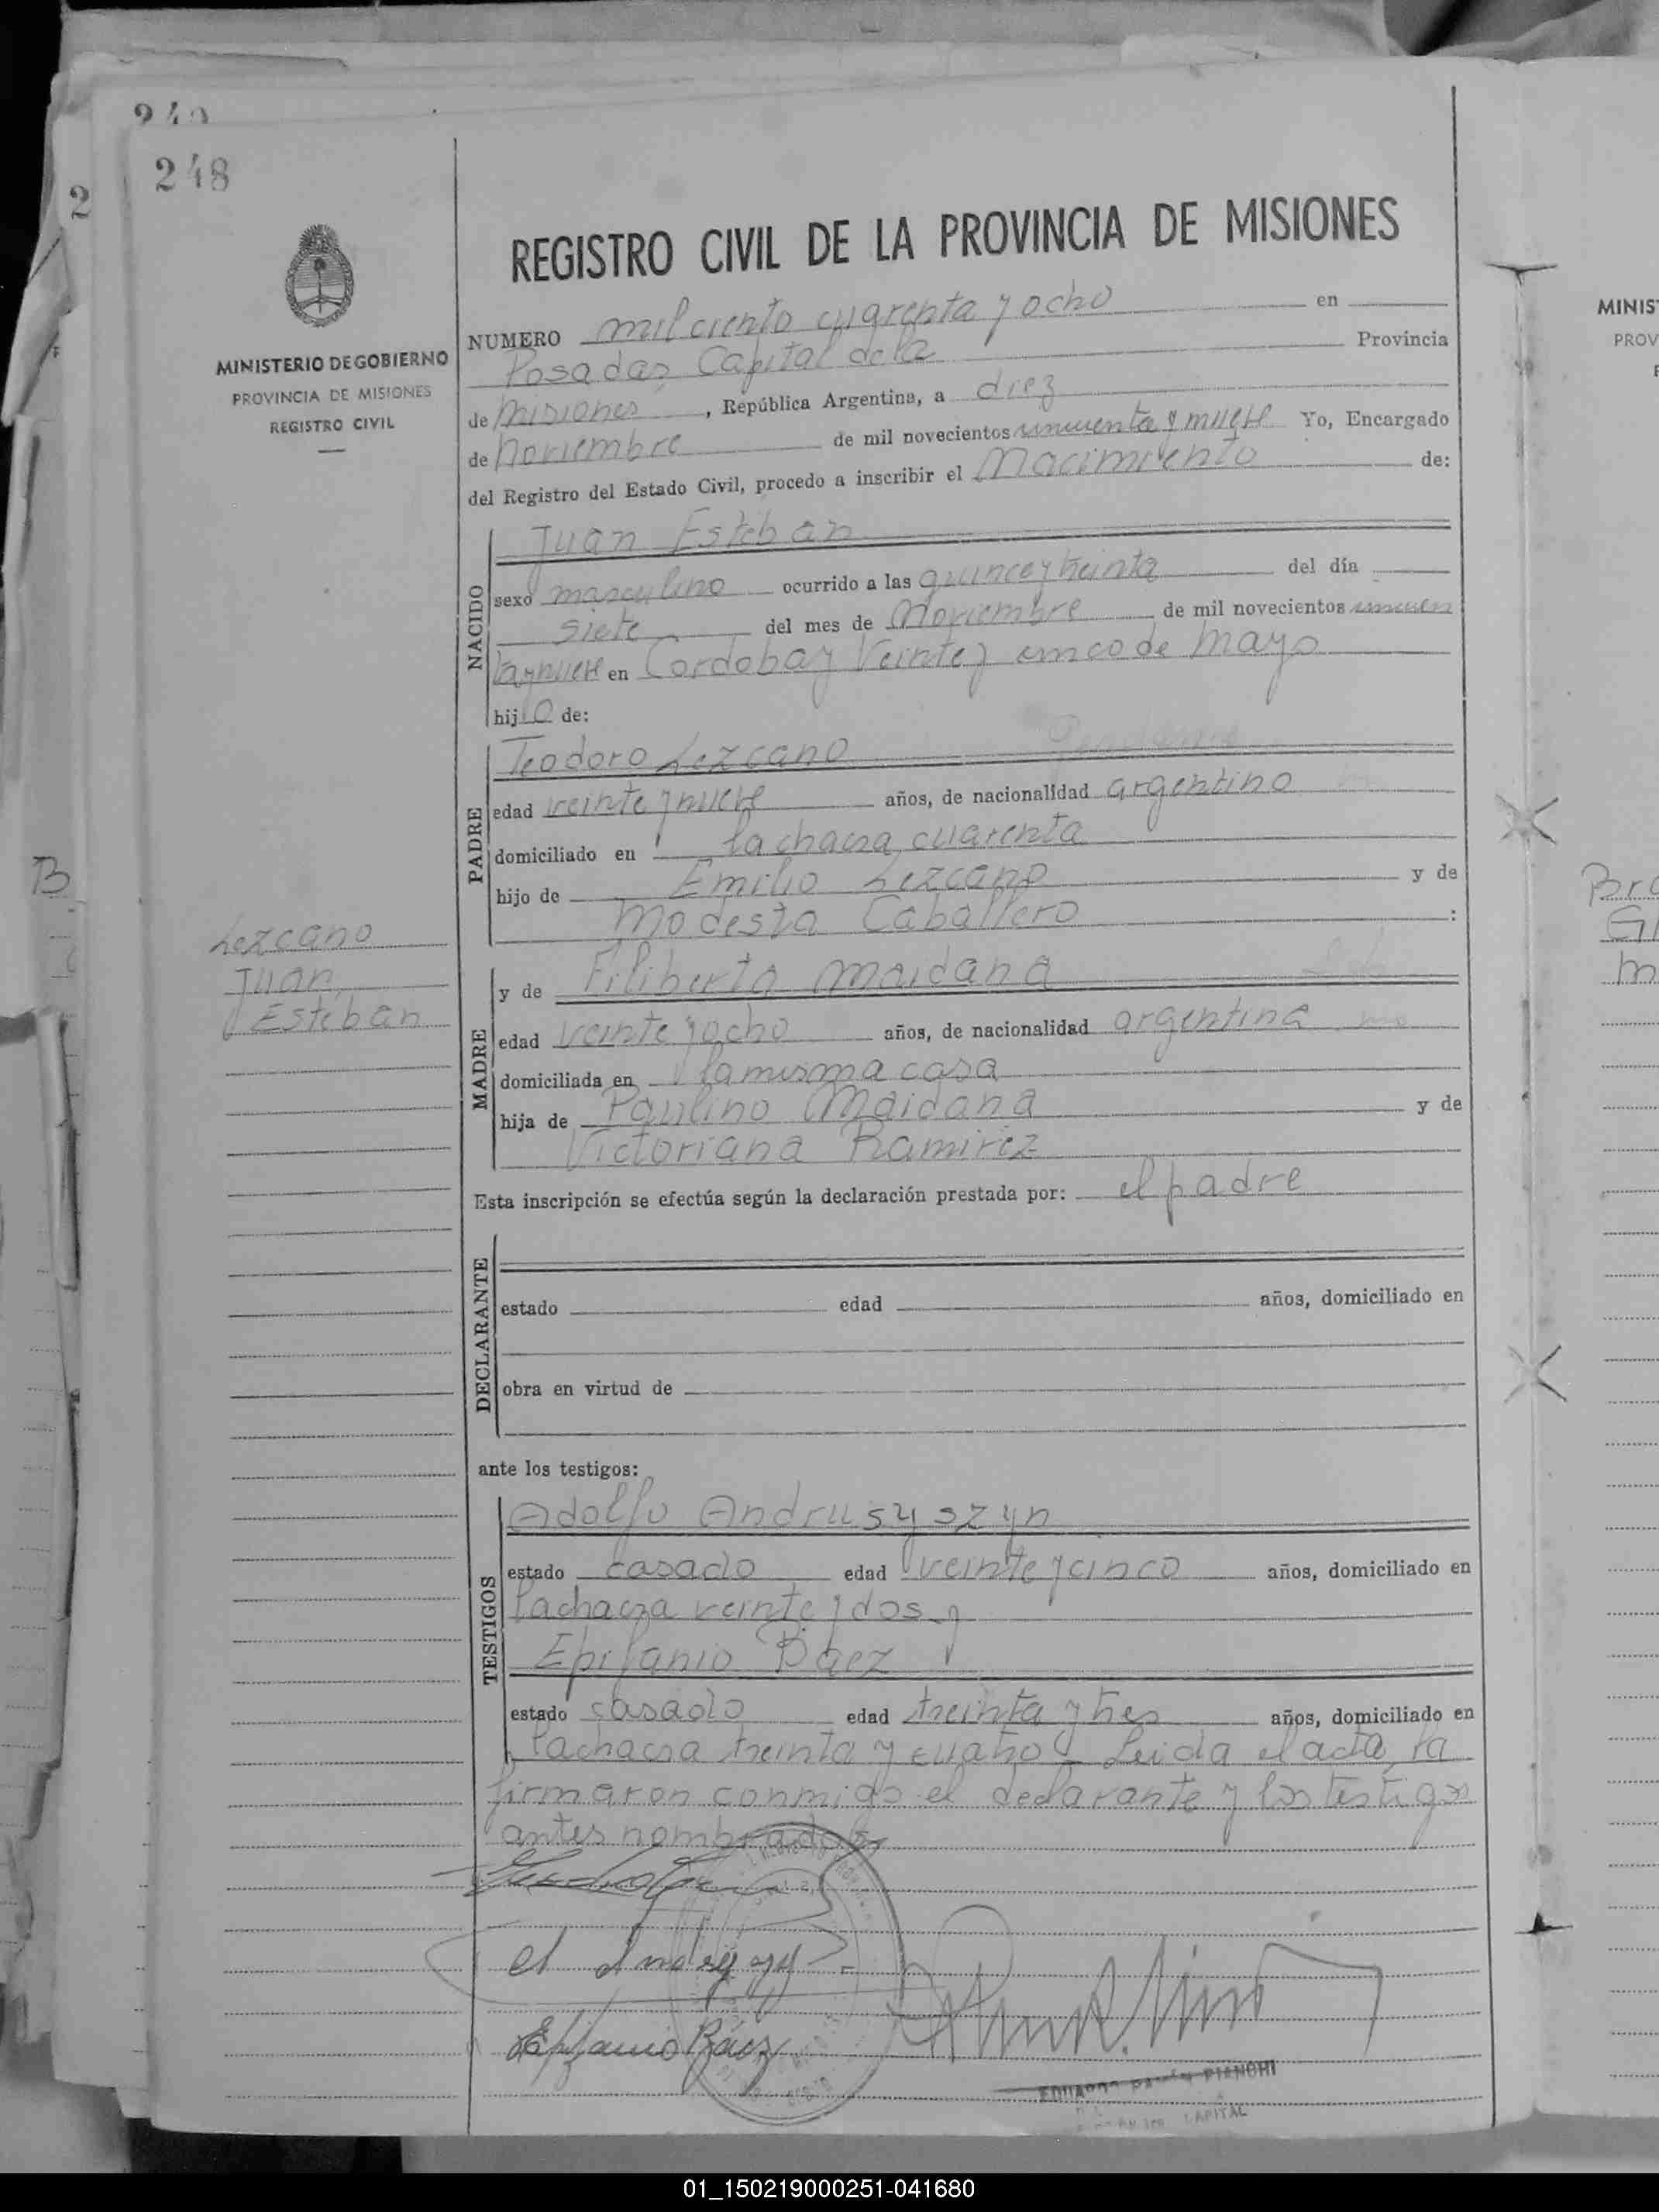 248
REGISTRO CIVIL DE LA PROVINCIA DE MISIONES
MINISTERIO DE GOBIERNO
PROVINCIA DE MISIONES
REGISTRO CIVIL
NUMERO mil ciento cuarenta y ocho en
Posadas Capital de la Provincia
de Misiones, República Argentina, a diez
de Noviembre de mil novecientos cincuenta y nueve Yo, Encargado
del Registro del Estado Civil, procedo a inscribir el Nacimiento de:
NACIDO
Juan Esteban
sexo masculino ocurrido a las quince y treinta del día
siete del mes de Noviembre de mil novecientos cincuen
ta y nueve en Cordoba y Veinte y cinco de Mayo
hijo de:
PADRE
Teodoro Lezcano
edad veinte y nueve años, de nacionalidad argentino
domiciliado en la chacra cuarenta
hijo de Emilio Lezcano y de
Modesta Caballero :
Lezcano
Juan
Esteban
MADRE
y de Filiberta Maidana
edad veinte y ocho años, de nacionalidad argentina
domiciliada en la misma casa
hija de Paulino Maidana y de
Victoriana Ramirez
Esta inscripción se efectúa según la declaración prestada por: el padre
DECLARANTE
estado edad años, domiciliado en
obra en virtud de
ante los testigos:
TESTIGOS
Adolfo Andrusyszyn
estado casado edad veinte y cinco años, domiciliado en
la chacra veinte y dos y
Epifanio Baez
estado casado edad treinta y tres años, domiciliado en
la chacra treinta y cuatro Leida el acta, la
firmaron conmigo el declarante y los testigos
antes nombrados
Epifanio Báez
EDUARDO RAMÓN BIANCHI
CAPITAL
MINIS
PROV
01_150219000251-041680